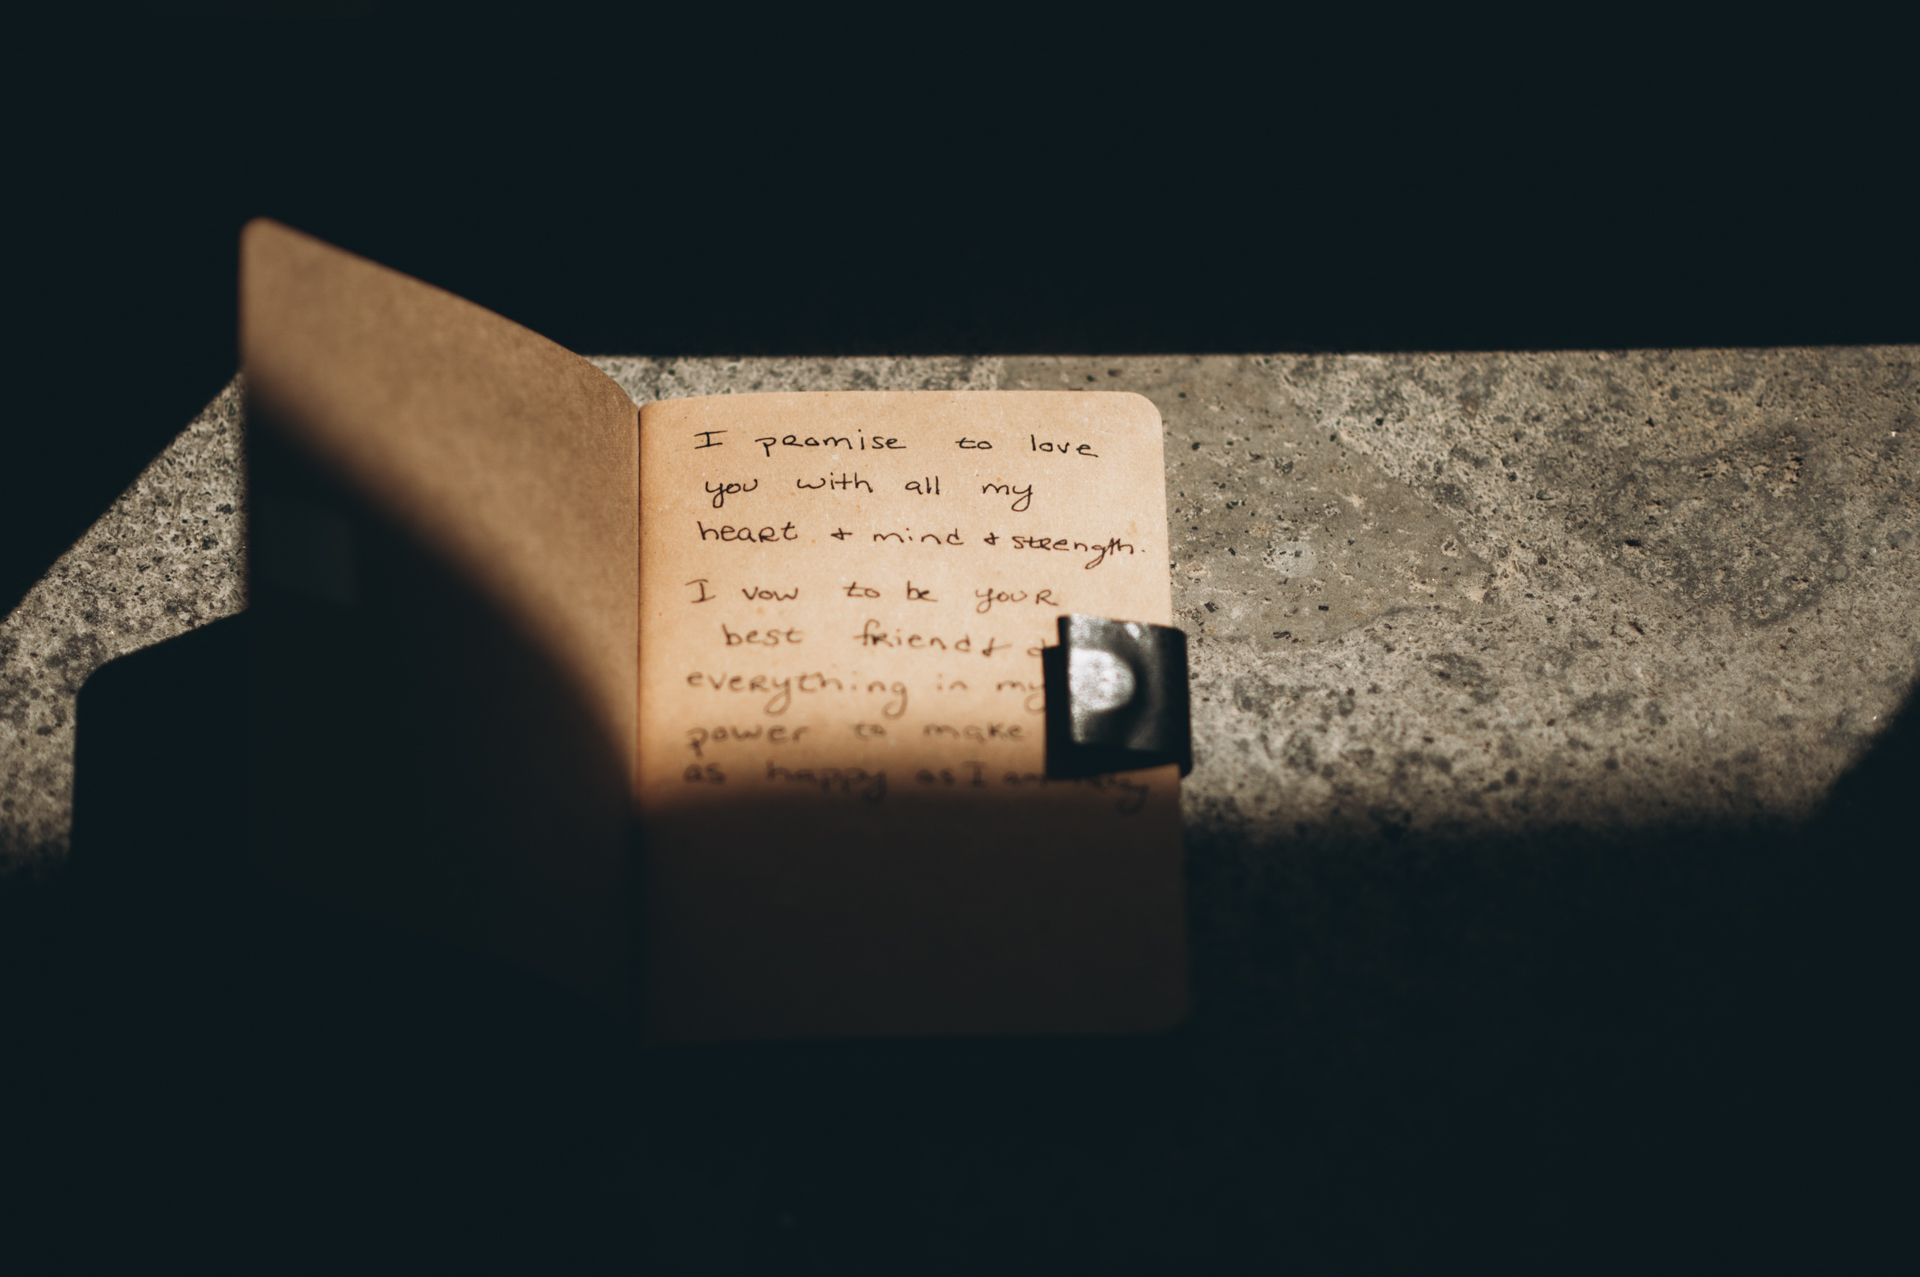 I promise to love
you with all my
heart & mind & strength.
I vow to be your
best friend &
everything in my
power to make
as happy as I